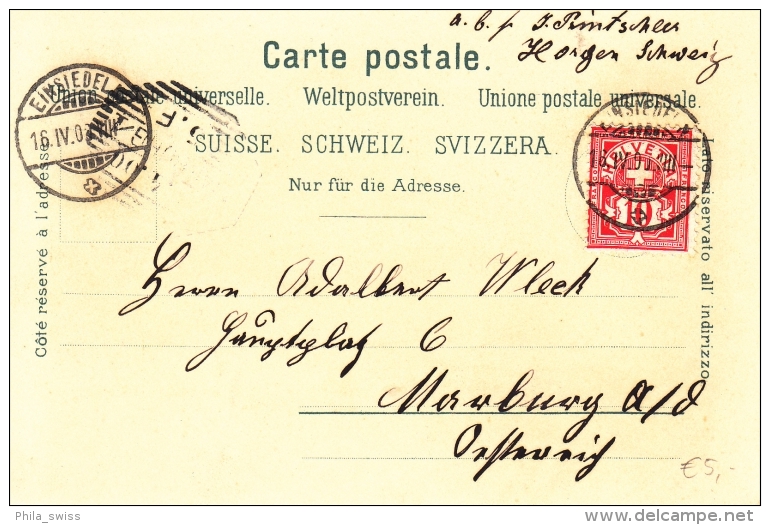 a. b. s. J. Pintscher
Horgen Schweiz
Carte postale.
Union postale universelle. Weltpostverein. Unione postale universale.
SUISSE. SCHWEIZ. SVIZZERA.
Nur für die Adresse.
EINSIEDEL
16. IV. 0
EINSIEDEL
HELVETIA
10
Côté réservé à l'adresse.
Lato riservato all' indirizzo.
Herrn Adalbert Wleck
Hauptplatz 6
Marburg a/d
Oesterreich
€5,-
Phila_swiss
delcampe.net